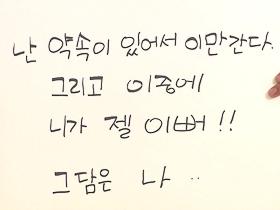 난 약속이 있어서 이만간다.
그리고 이중에
니가 젤 이뻐 !!
그담은 나 ..